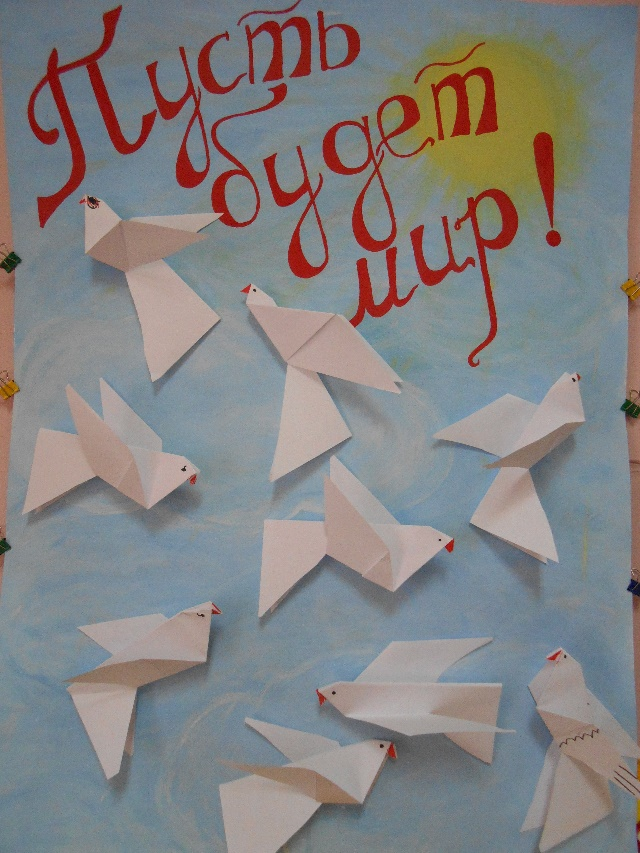 Пусть
будет
мир!